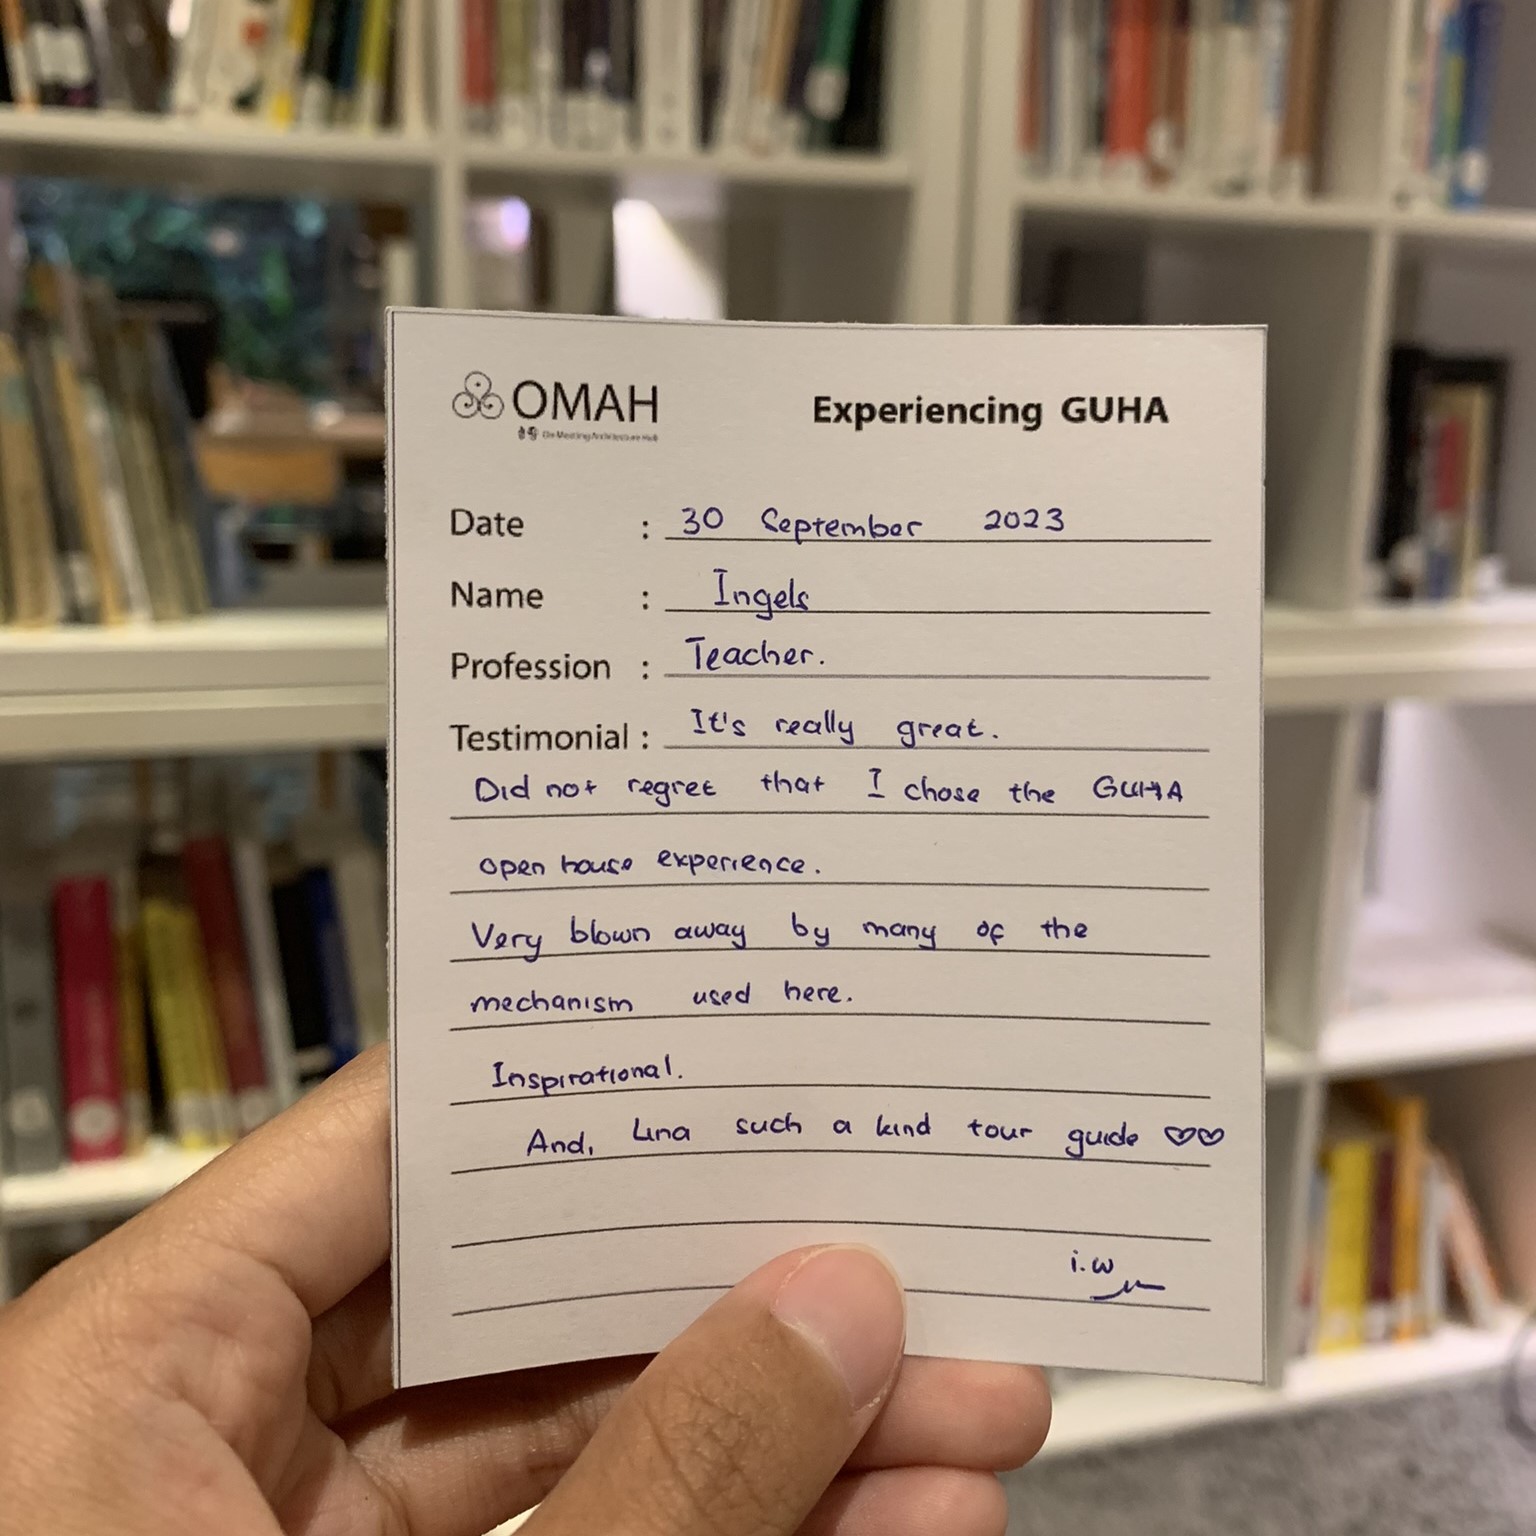 OMAH
Experiencing GUHA
Date : 30 September 2023
Name : Ingels
Profession : Teacher.
Testimonial : It's really great.
Did not regret that I chose the GUHA
open house experience.
Very blown away by many of the
mechanism used here.
Inspirational.
And, Lina such a kind tour guide ♡♡
i.w